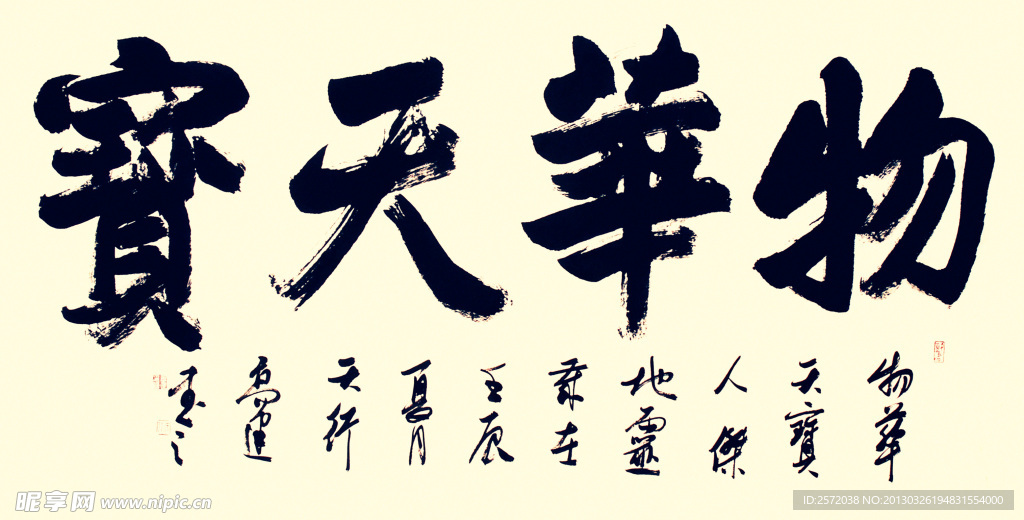 物華天寶
物華
天寶
人傑
地靈
歲在
壬辰
夏月
天行
書之
昵享网 www.nipic.cn
ID:2572038 NO:20130326194831554000